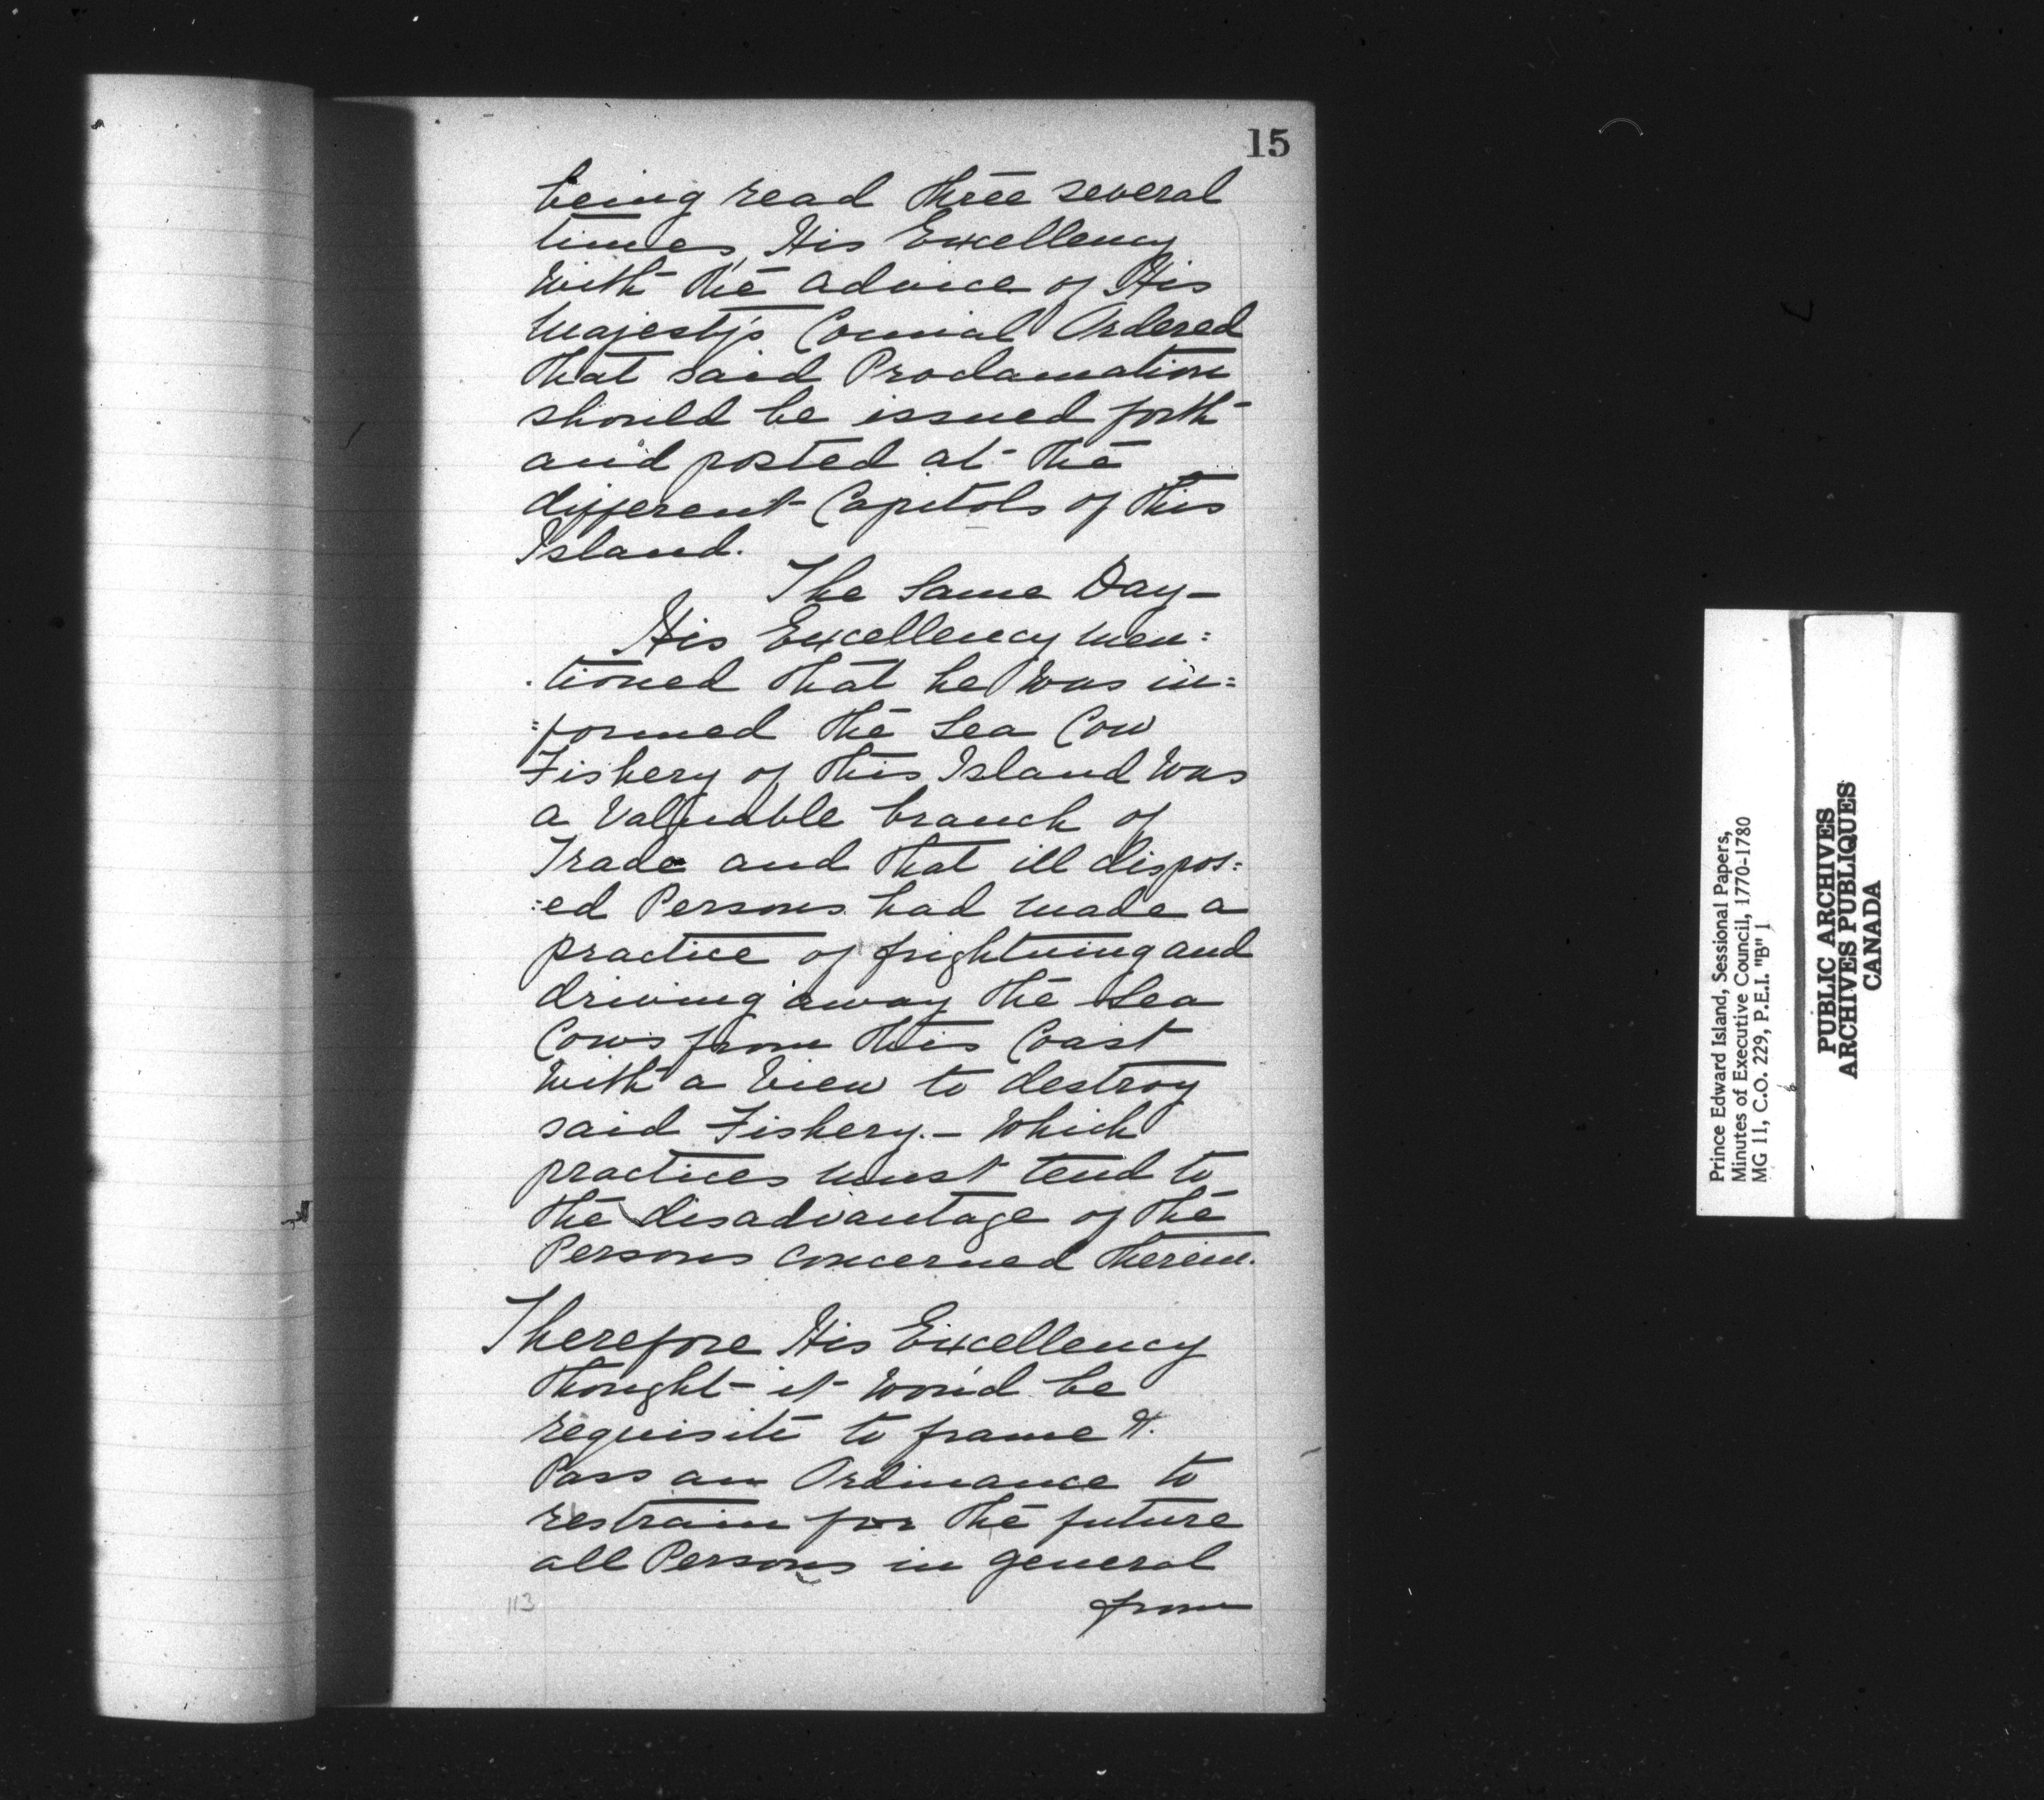 15
being read three several
times, His Excellency
with the advice of His
Majesty's Councial Ordered
that said Proclamation
should be issued forth
and posted at the
different Capitols of this
Island.
The Same Day-
His Excellency men=
=tioned that he was in=
=formed the Sea Cow
Fishery of this Island was
a Valuable branch of
Trade and that ill dispos=
=ed Persons had made a
practice of frightning and
driving away the Sea
Cows from this Coast
with a View to destroy
said Fishery.- Which
practices must tend to
the disadvantage of the
Persons concerned therein.
Therefore His Excellency
thought it wou'd be
requisite to frame &.
Pass an Ordinance to
restrain for the future
all Persons in general
from
113
Prince Edward Island, Sessional Papers,
Minutes of Executive Council, 1770-1780
MG 11, C.O. 229, P.E.I. "B" 1
PUBLIC ARCHIVES
ARCHIVES PUBLIQUES
CANADA